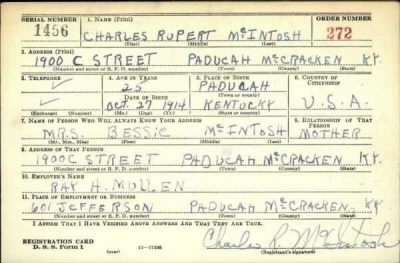 SERIAL NUMBER 1. NAME (Print) ORDER NUMBER
1456 CHARLES RUPERT McINTOSH 272
(First) (Middle) (Last)
2. ADDRESS (Print)
1900 C STREET PADUCAH McCRACKEN KY.
(Number and street or R. F. D. number) (Town) (County) (State)
3. TELEPHONE 4. AGE IN YEARS 5. PLACE OF BIRTH 6. COUNTRY OF CITIZENSHIP
✓ 25 PADUCAH
(Town or county)
DATE OF BIRTH
✓ OCT. 27 1914 KENTUCKY U.S.A.
(Exchange) (Number) (Mo.) (Day) (Yr.) (State or country)
7. NAME OF PERSON WHO WILL ALWAYS KNOW YOUR ADDRESS 8. RELATIONSHIP OF THAT PERSON
MRS. BESSIE McINTOSH MOTHER
(Mr., Mrs., Miss) (First) (Middle) (Last)
9. ADDRESS OF THAT PERSON
1900 C STREET PADUCAH McCRACKEN KY.
(Number and street or R. F. D. number) (Town) (County) (State)
10. EMPLOYER'S NAME
RAY H. MULLEN
11. PLACE OF EMPLOYMENT OR BUSINESS
601 JEFFERSON PADUCAH McCRACKEN KY.
(Number and street or R. F. D. number) (Town) (County) (State)
I AFFIRM THAT I HAVE VERIFIED ABOVE ANSWERS AND THAT THEY ARE TRUE.
REGISTRATION CARD
D. S. S. FORM 1 Charles R. McIntosh
(Registrant's signature)